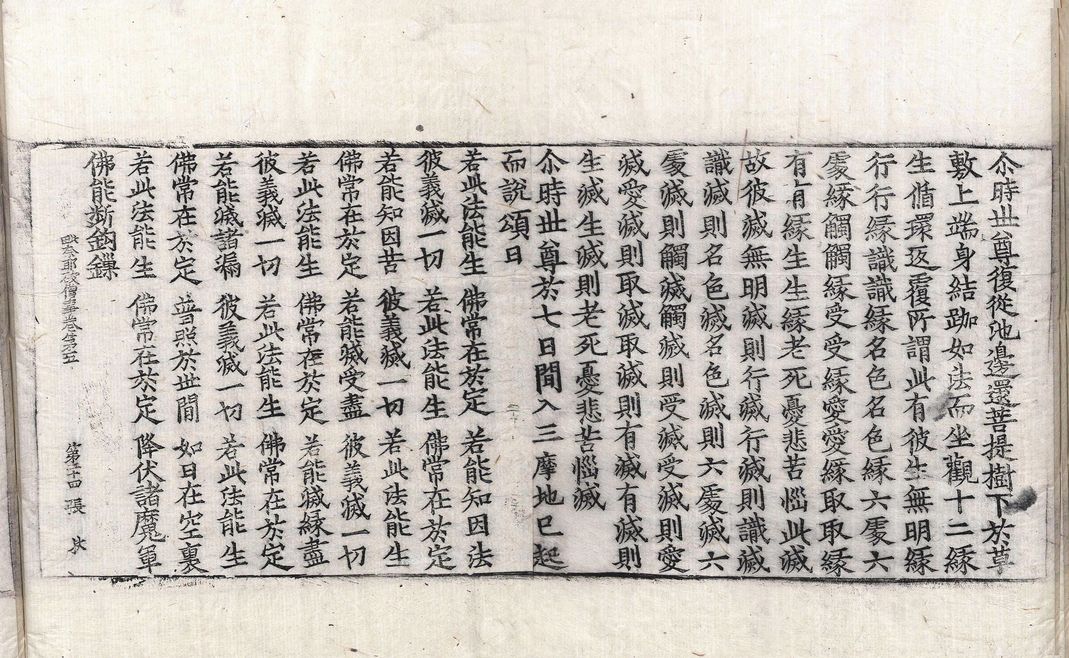 尒時丗尊復從池邊還菩提樹下於草
敷上端身結跏如法而坐觀十二縁
生循環返覆所謂此有彼生無明縁
行行縁識識縁名色名色縁六處六
處縁觸觸縁受受縁愛愛縁取取縁
有有縁生生縁老死憂悲苦惱此滅
故彼滅無明滅則行滅行滅則識滅
識滅則名色滅名色滅則六處滅六
處滅則觸滅觸滅則受滅受滅則愛
滅愛滅則取滅取滅則有滅有滅則
生滅生滅則老死憂悲苦惱滅
尒時丗尊於七日閒入三摩地已起
而說頌曰
若此法能生 佛常在於定 若能知因法
彼義滅一切 若此法能生 佛常在於定
若能知因苦 彼義滅一切 若此法能生
佛常在於定 若能滅受盡 彼義滅一切
若此法能生 佛常在於定 若能滅縁盡
彼義滅一切 若此法能生 佛常在於定
若能滅諸漏 彼義滅一切 若此法能生
佛常在於定 普照於丗閒 如日在空裏
若此法能生 佛常在於定 降伏諸魔軍
佛能斷鉤鏁
破僧事卷第五 第十四張